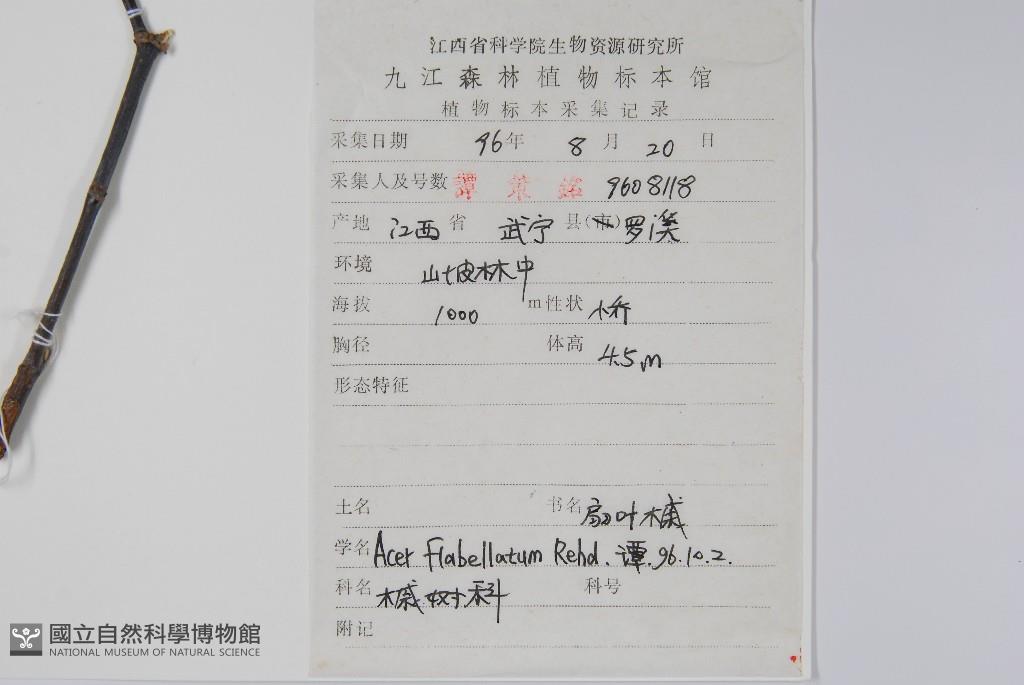 江西省科学院生物资源研究所
九江森林植物标本馆
植物标本采集记录
采集日期 96年 8 月 20 日
采集人及号数 譚策銘 9608118
产地 江西 省 武宁 县(市) 罗溪
环境 山坡林中
海拔 1000 m 性状 小乔
胸径 体高 4.5m
形态特征
土名 书名 扇叶槭
学名 Acer Flabellatum Rehd. 谭.96.10.2.
科名 槭树科 科号
附记
國立自然科學博物館
NATIONAL MUSEUM OF NATURAL SCIENCE